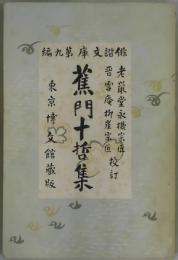 俳諧文庫第九編
老鼠堂永機宗匠
晋雪庵柳崖宗匠 校訂
蕉門十哲集
東京博文館蔵版